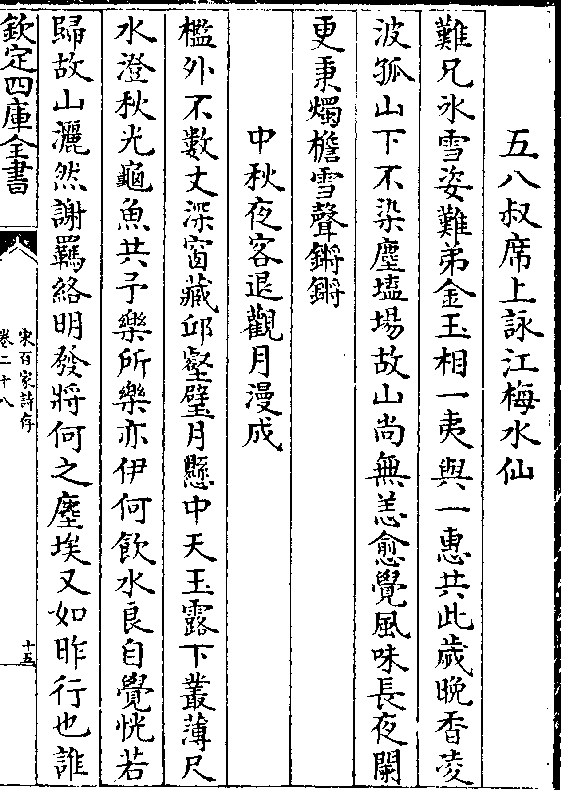 五八叔席上詠江梅水仙
難兄氷雪姿難弟金玉相一夷與一惠共此歲晚香凌
波孤山下不染塵壒場故山尚無恙愈覺風味長夜闌
更秉燭檐雪聲鏘鏘
中秋夜客退觀月漫成
檻外不數丈深窗藏邱壑璧月懸中天玉露下叢薄尺
水澄秋光龜魚共予樂所樂亦伊何飲水良自覺恍若
歸故山灑然謝羈絡明發將何之塵埃又如昨行也誰
欽定四庫全書
宋百家詩存
卷二十八
十五